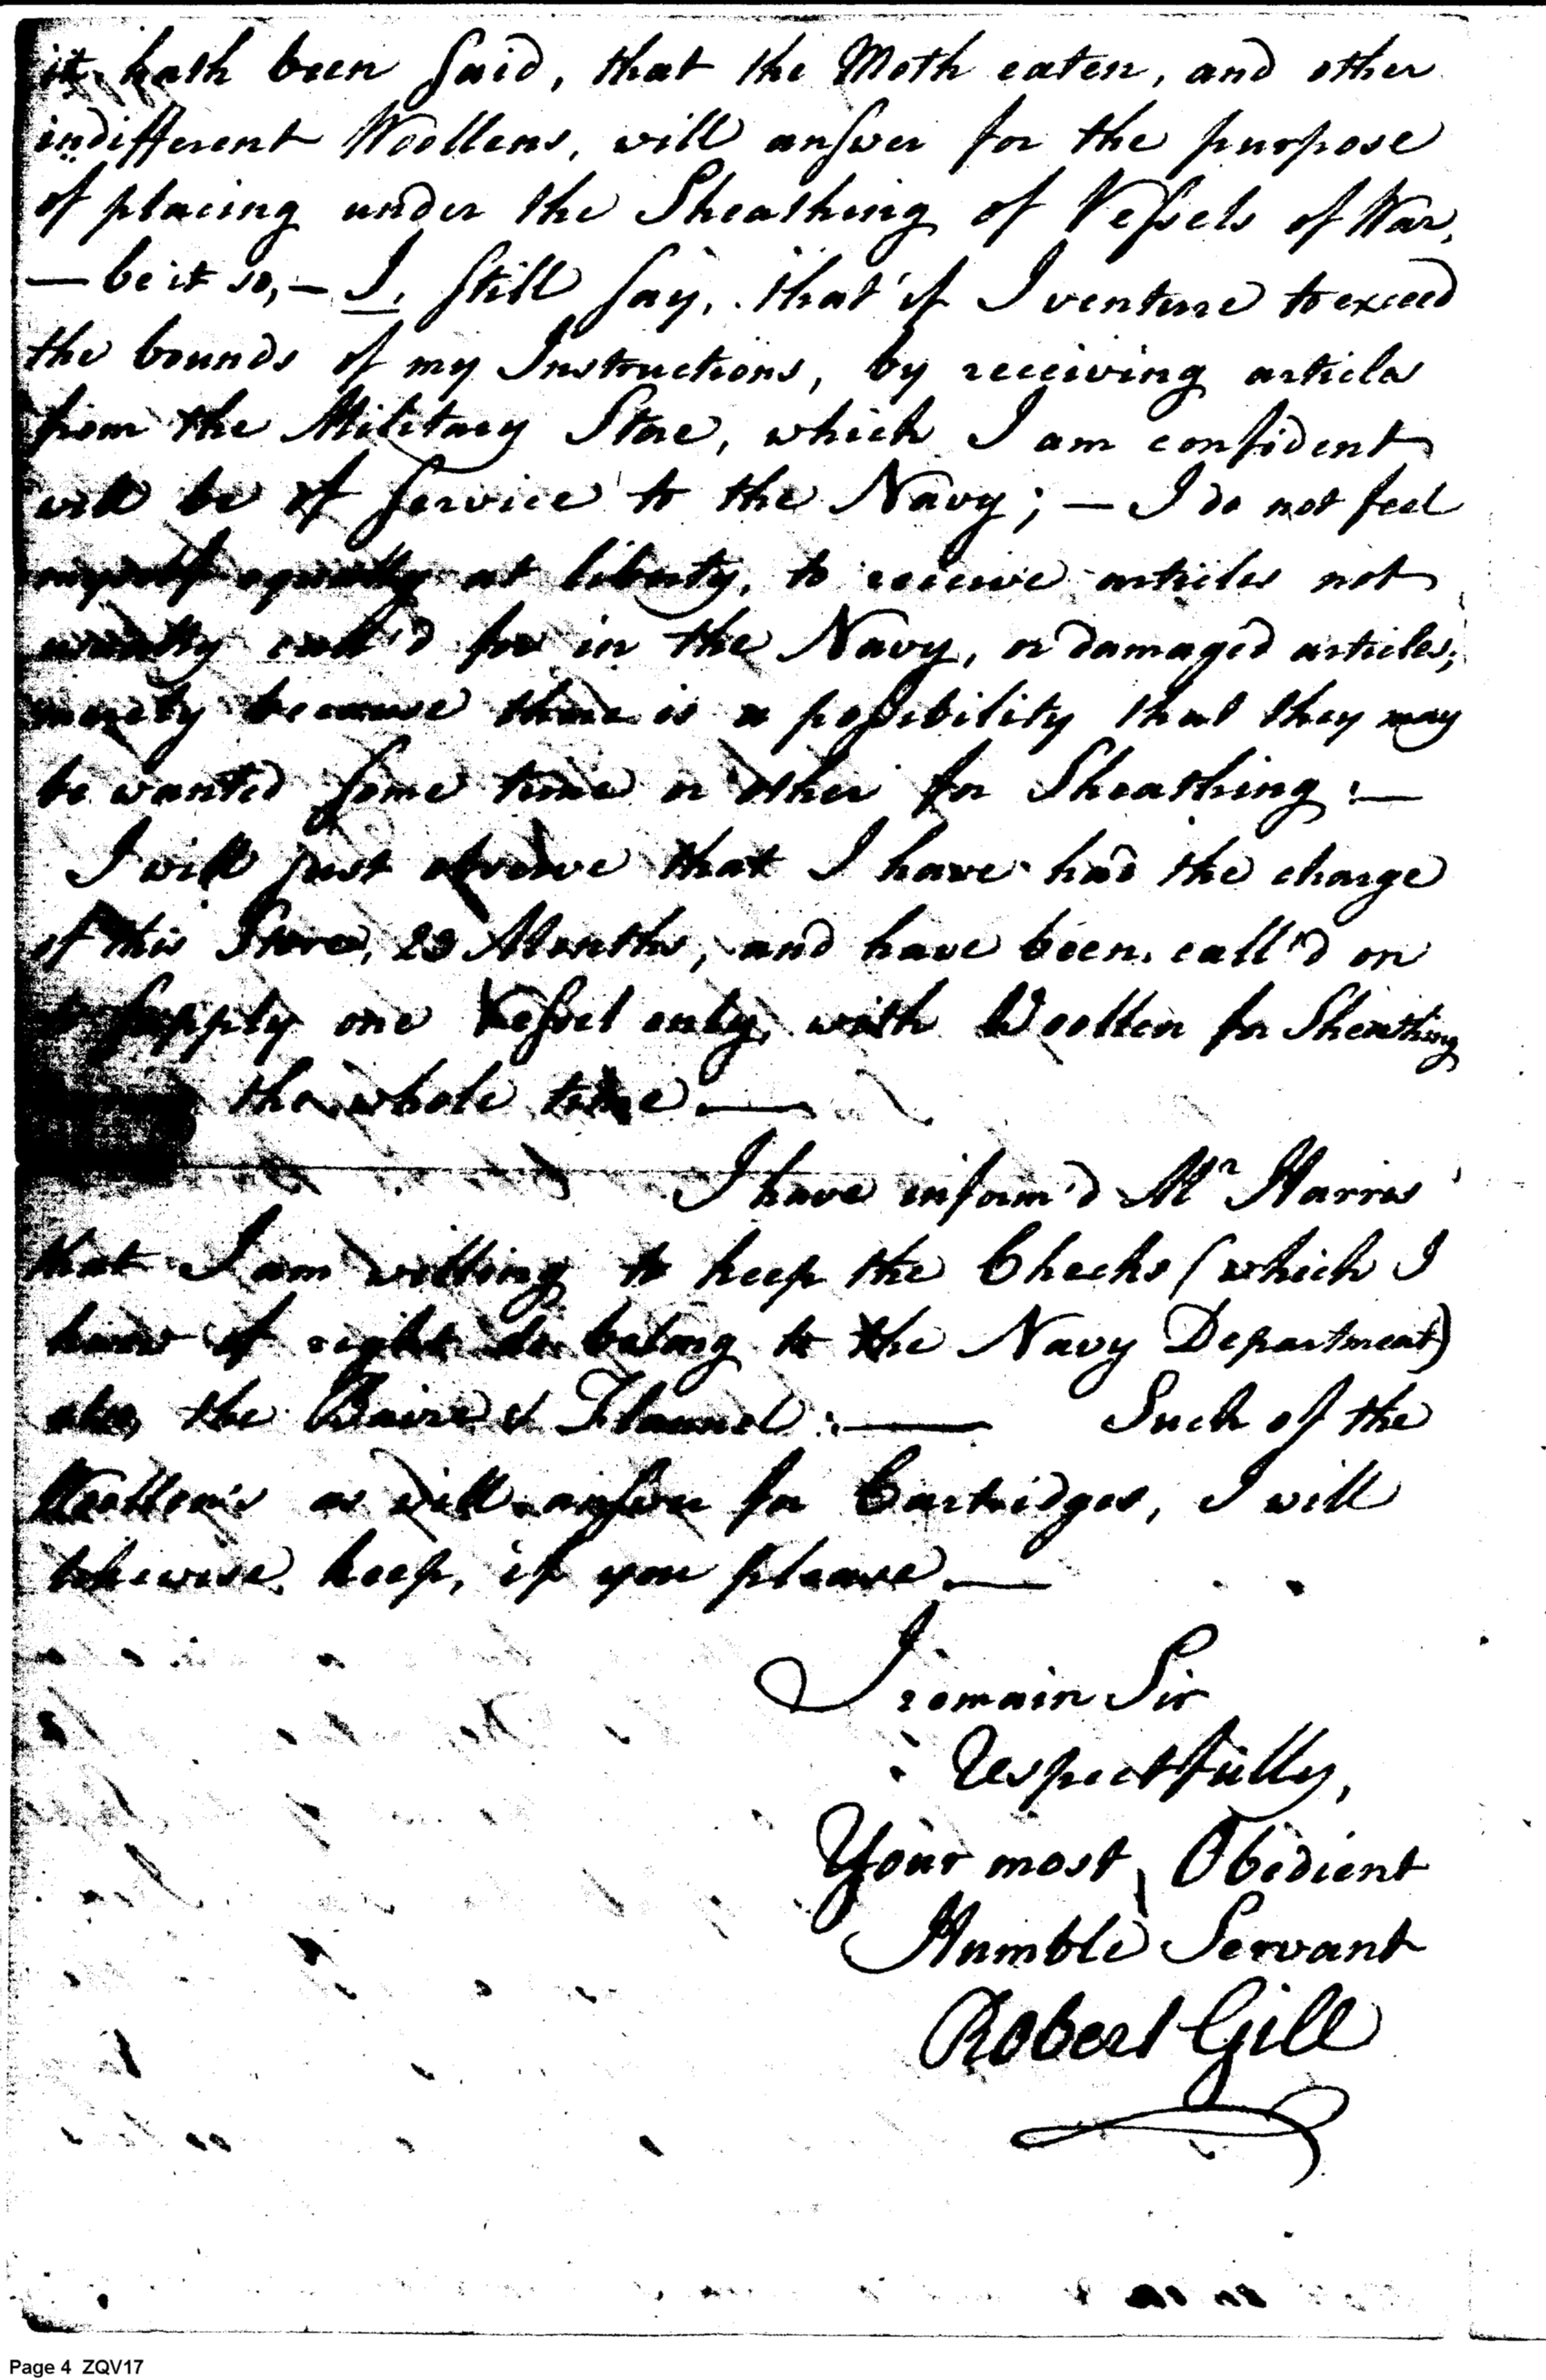 it hath been said, that the Moth eaten, and other
indifferent Woollens, will answer for the purpose
of placing under the Sheathing of Vessels of War,
— be it so, — I, still say, that if I venture to exceed
the bounds of my Instructions, by receiving articles
from the Military Store, which I am confident
will be of service to the Navy; — I do not feel
myself equally at liberty, to receive articles not
usually call'd for in the Navy, or damaged articles,
merely because there is a possibility that they may
be wanted some time or other for Sheathing :—
I will just observe that I have had the charge
of this Store, Months, and have been call'd on
to supply one Vessel only, with Woollen for Sheathing
the whole time —
I have inform'd Mr Harris
that I am willing to keep the Checks (which I
know of right do belong to the Navy Department)
also, the Baize & Flannel :— Such of the
Woollen's as will answer for Cartridges, I will
likewise keep, if you please —
I remain Sir
Respectfully,
Your most Obedient
Humble Servant
Robert Gill
Page 4 ZQV17